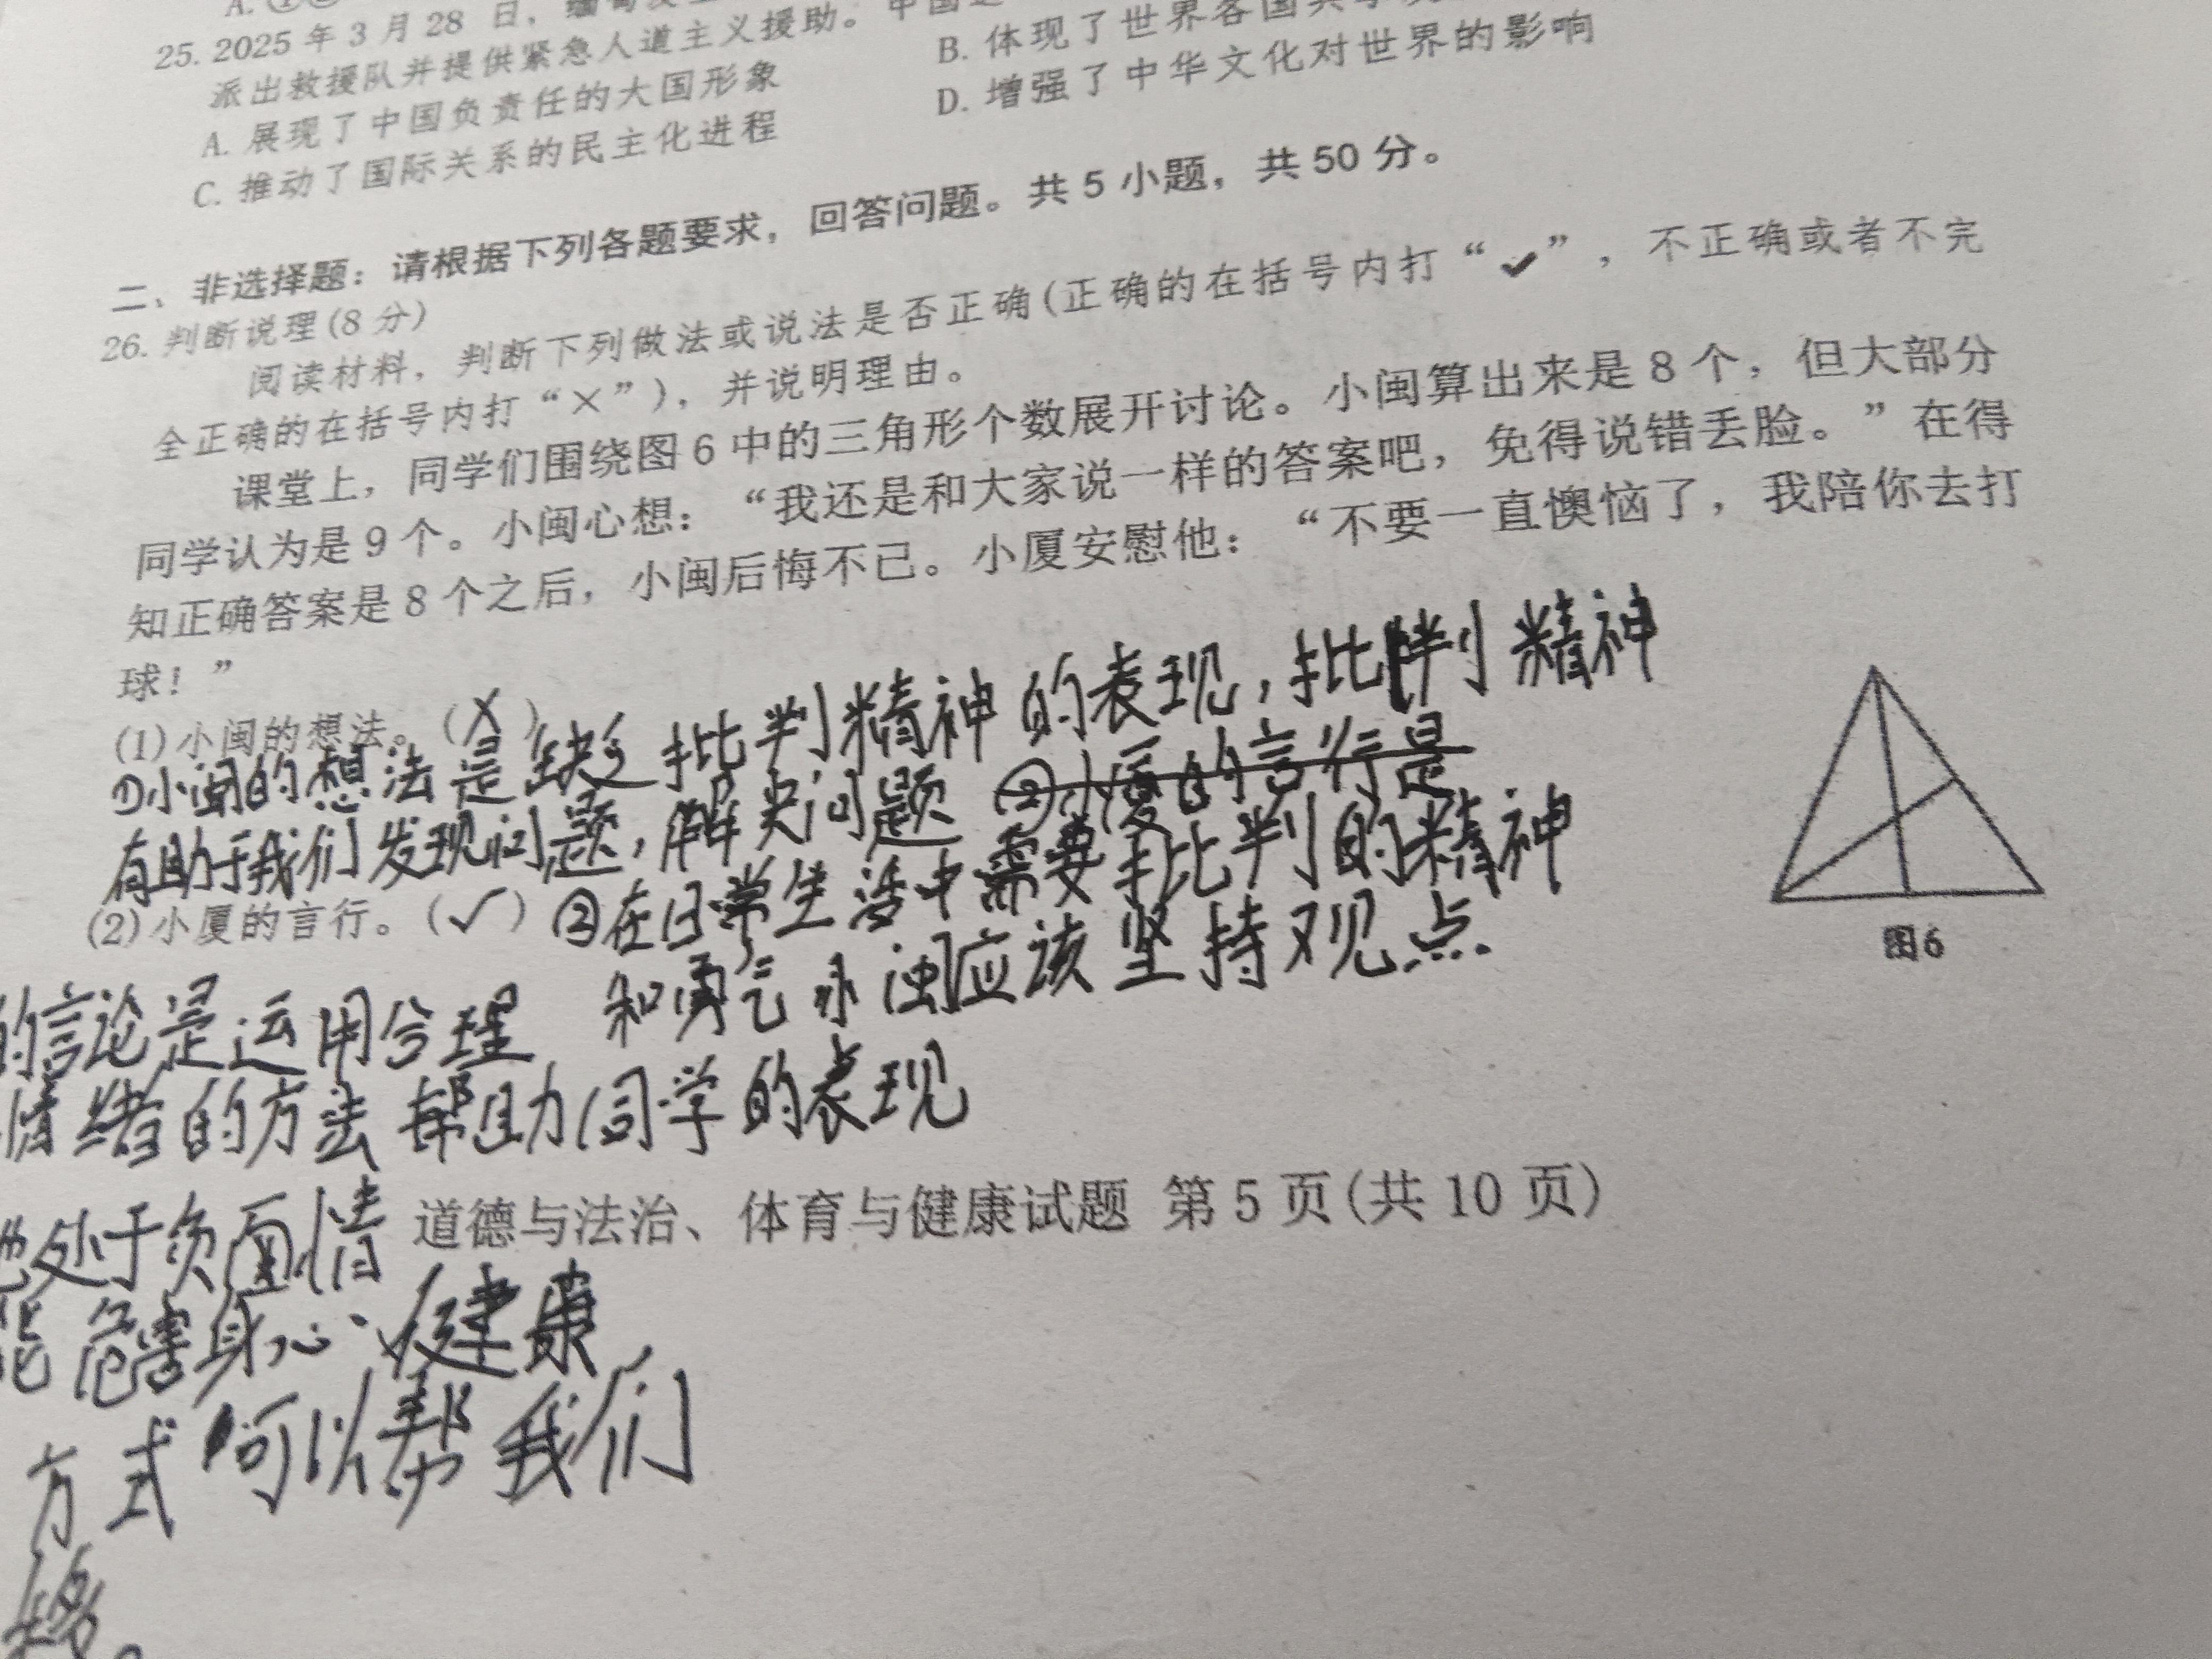 25. 2025 年 3 月 28 日，缅甸发生
派出救援队并提供紧急人道主义援助。中国
A. 展现了中国负责任的大国形象
B. 体现了世界各国
C. 推动了国际关系的民主化进程
D. 增强了中华文化对世界的影响
二、非选择题：请根据下列各题要求，回答问题。共 5 小题，共 50 分。
26. 判断说理(8 分)
阅读材料，判断下列做法或说法是否正确(正确的在括号内打“✓”，不正确或者不完
全正确的在括号内打“×”)，并说明理由。
课堂上，同学们围绕图 6 中的三角形个数展开讨论。小闽算出来是 8 个，但大部分
同学认为是 9 个。小闽心想：“我还是和大家说一样的答案吧，免得说错丢脸。”在得
知正确答案是 8 个之后，小闽后悔不已。小厦安慰他：“不要一直懊恼了，我陪你去打
球！”
(1)小闽的想法。(X)
①小闽的想法是缺乏批判精神的表现,批判精神
有助于我们发现问题,解决问题 ②小厦的言行是
(2)小厦的言行。(✓) ②在日常生活中需要批判的精神
和勇气小闽应该坚持观点.
图6
的言论是运用合理
情绪的方法帮助同学的表现
他处于负面情
能危害身心健康
方式可以帮我们
道德与法治、体育与健康试题 第 5 页(共 10 页)